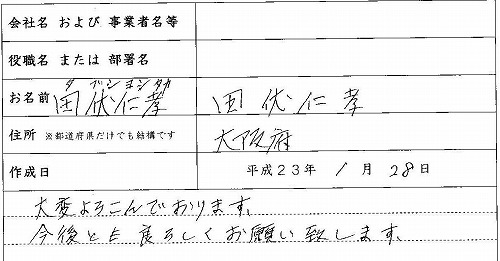 会社名 および 事業者名等
役職名 または 部署名
タブシヨシタカ
お名前 田伏仁孝 田伏仁孝
住所 ※都道府県だけでも結構です 大阪府
作成日 平成23年 1月 28日
大変よろこんでおります。
今後とも良ろしくお願い致します。